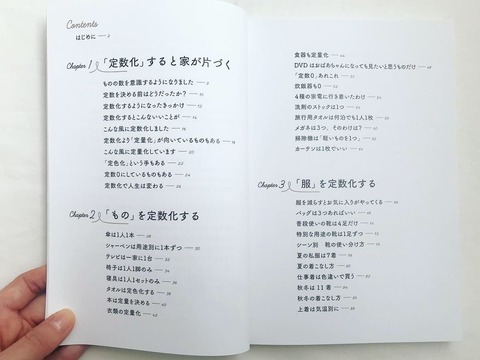 Contents
はじめに — 2
Chapter 1 「定数化」すると家が片づく
ものの数を意識するようになりました — 8
定数を決める前はどうだった? — 10
定数化するようになったきっかけ — 12
定数化するとこんないいことが — 14
こんな風に定数化しました — 16
定数化よう「定量化」が向いているものもある — 18
こんな風に定量化しています — 20
「定色化」という手もある — 22
定数0にしているものもある — 24
定数化で人生は変わる — 26
Chapter 2 「もの」を定数化する
傘は1人1本 — 28
シャーペンは用途別に1本ずつ — 30
テレビは一家に1台
椅子は1人1脚のみ
寝具は1人1セットのみ
タオルは定色化する
本は定量を決める — 40
衣類の定量化
食器も定量化
DVDはおばあちゃんになっても見たいと思うものだけ
「定数0」あれこれ
炊飯器も0
4種の家電に行き着いたわけ
洗剤のストックは1つ
旅行用タオルは何泊でも1人1枚
メガネは3つ、そのわけは?
掃除機は「軽いものを1つ」
カーテンは1枚でいい
Chapter 3 「服」を定数化する
服を減らすとお気に入りがやってくる
バッグは3つあればいい
普段使いの靴は4足だけ
特別な用途の靴は1足ずつ
シーン別 靴の使い分け方
夏の私服は7着
夏の着こなし方
仕事着は色違いで買う
秋冬は11着
秋冬の着こなし方
上着は気温別に